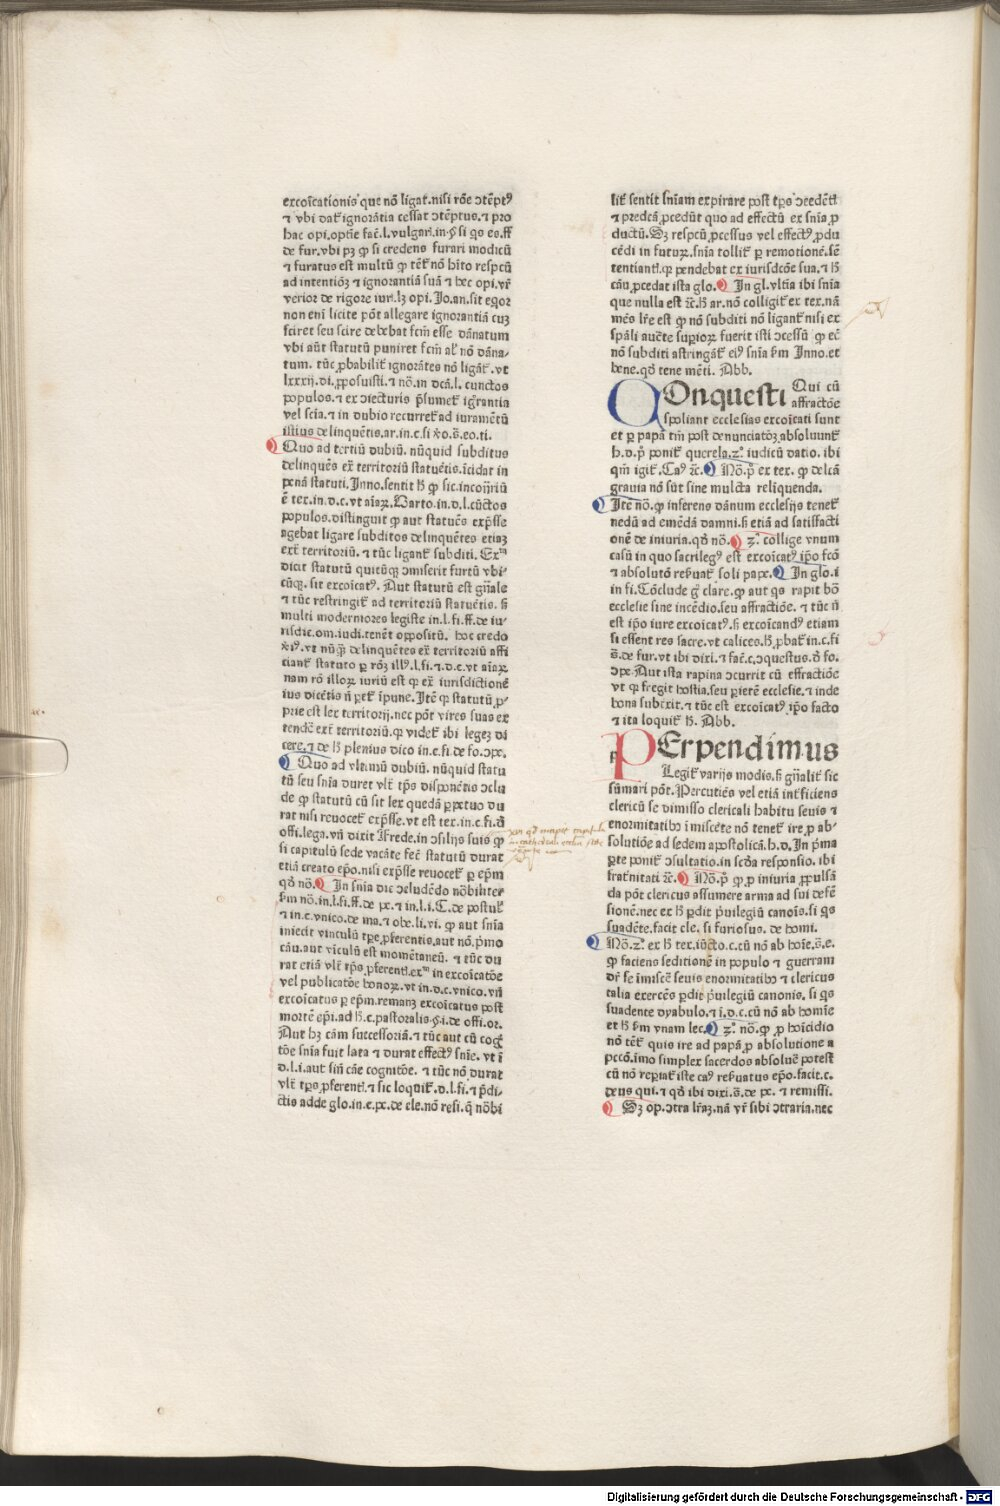 excoīcationis que nō ligat̄.nisi rōe ↄtēptꝰ
⁊ vbi dat̄ ignorātia cessat ↄtēptus.⁊ pro
hac opi.optīe fac̄.l.vulgari.in.§ si qs eo.ff
de fur.vbi pꝫ ꝙ si credens furari modicū
⁊ furatus est multū ꝙ tēt̄ nō hīto respcū
ad intentiōꝫ ⁊ ignorantiā suā ⁊ hec opi.vr̄
verior de rigore iur̄.lꝫ opi. Jo.an.sit eqor
non eni licite pōt allegare ignorantiā cuꝫ
sciret seu scire debebat fcm̄ esse dānatum
vbi aūt statutū puniret fcm̄ al̄ nō dāna-
tum. tūc ꝓbabilit̄ ignorātes nō ligāt̄.vt
lxxxij.di.ꝓposuisti.⁊ nō.in dcā.l. cunctos
populos.⁊ ex ↄiecturis p̄sumet̄ igrantia
vel scia.⁊ in dubio recurret̄ ad iuramētū
istius delinquētis.ar.in.c.si v̊o.s̄.eo.ti.
Quo ad tertiū dubiū. nūquid subditus
delinquēs ex̄ territoriū statuētis.īcidat in
penā statuti. Inno.sentit ꝙ sic.
ē tex.in.d.c.vt aīaꝝ. Barto.in.d.l.cūctos
populos.distinguit ꝙ aut statuēs exp̄sse
agebat ligare subditos delinquētes etiaꝫ
ext̄ territoriū. ⁊ tūc ligant̄ subditi.
dicit statutū quitūqꝫ ↄmiserit furtū vbi-
cūqꝫ. sit excoīcatꝰ. Aut statutū est gn̄ale
⁊ tūc restringit̄ ad territoriū statuētis. s̄
multi modernores legiste in.l.fi.ff.de iu-
risdic.om.iudi.tenēt oppositū. hoc credo
vt nūqͣ delinquētes ex̄ territoriū affi
ciant̄ statuto ꝑ rōꝫ illꝰ.l.fi.⁊.d.c.vt aīaꝝ
nam rō illoꝝ iuriū est ꝙ ex̄ iurisdictionē
ius dicētis n̄ ꝑet̄ īpune. Itē ꝙ statutū ꝓ-
prie est lex territorij.nec pōt vires suas ex
tendē ext̄ territoriū.ꝙ videt̄ ibi legeꝫ di
cere.⁊ de plenius dico in.c.fi.de fo.ↄpe.
Quo ad vltimū dubiū. nūquid statu
tū seu snīa duret vlt̄ tp̄s disponētis ↄclu
de ꝙ statutū cū sit lex quedā ꝑpetuo du
rat nisi reuocet̄ exp̄sse.vt est tex.in.c.fi.
offi.lega.vn̄ dixit Frede.in ↄsilijs suis ꝙ
si capitulū sede vacāte fec̄ statutū durat
etiā creato ep̄o.nisi exp̄sse reuocet̄ ꝑ ep̄m
qd̄ nō. In snīa dic ↄcludēdo nōbiliter
s̄m nō.in.l.fi.ff.de pe.⁊ in.l.i.C.de postul̄
⁊ in.c.vnico.de ma.⁊ obe.li.vi. ꝙ aut snīa
iniecit vinculū tp̄e ꝓferentis.aut nō.pͥmo
cāu.aut viculū est momētaneū. ⁊ tūc du
rat etiā vlt̄ tp̄s ꝓferent̄.exᵐ in excoīcatōe
vel publicatōe bonoꝝ.vt in.d.c.vnico.vn̄
excoīcatus ꝑ ep̄m.remanꝫ excoīcatus post
mortē ep̄i.ad h̄.c.pastoralis.§.i.de offi.or.
Aut hꝫ cām successoriā.⁊ tūc aut cū coḡ
tōe snīa fuit lata ⁊ durat effectꝰ snīe. vt ī
d.l.i.aut sin̄ cāe cognitōe. ⁊ tūc nō durat
vlt̄ tp̄s ꝓferent̄.⁊ sic loquit̄.d.l.fi.⁊ p̄di-
ctis adde glo.in.c.px.de ele.nō resi.q̄ nōbi
lit̄ sentit snīam expirare post tp̄s ↄcedēt̄
⁊ predcā ꝓcedūt quo ad effectū ex snīa ꝓ
ductū. Sꝫ respcū ꝓcessus vel effectꝰ ꝓdu
cēdi in futuꝝ.snīa tollit̄ ꝑ remotionē.sē
tentiant̄.ꝙ pendebat ex iurisdcōe sua.⁊ h̄
cāu ꝓcedat ista glo. In gl.vltīa ibi snīa
que nulla est ⁊c̄.h̄ ar.nō colligit̄ ex tex.nā
mēs lr̄e est ꝙ nō subditi nō ligant̄ nisi ex
sp̄ali aucte supioꝝ fuerit isti ↄcessū ꝙ ec̄
nō subditi astringāt̄ eiꝰ snīa s̄m Inno.et
bene.qd̄ tene mēti. Abb.
COnquesti Qui cū
affractōe
spoliant ecclesias excoīcati sunt
et ꝑ papā tm̄ post denunciatōꝫ absoluunt̄
h.d.pͦ ponit̄ querela.zͦ. iudicū datio. ibi
qm̄ igit̄. Caꝰ ⁊c̄. Nō.pͦ ex tex. ꝙ delcā
grauia nō sūt sine mulcta relīquenda.
Itē nō.ꝙ inferens dānum ecclesijs tenet̄
nedū ad emēdā damni.s̄ etiā ad satisfacti
onē de iniuria.qd̄ nō. zͦ. collige vnum
casū in quo sacrilegꝰ est excoīcatꝰ ip̄o fcō
⁊ absolutō reẜuat̄ soli pape. In glo.i
in fi.Cōclude g̊ clare.ꝙ aut qs rapit bō
ecclesie sine incēdio.seu affractiōe. ⁊ tūc n̄
est ip̄o iure excoīcatꝰ.s̄ excoīcandꝰ etiam
si essent res sacre.vt calices.h̄ ꝓbat̄ in.c.fi
s̄.de fur.vt ibi dixi.⁊ fac̄.c.ↄquestus.d̄ fo.
ↄpe. Aut ista rapina ↄcurrit cū effractiōe
vt ꝙ fregit hostia.seu pietē ecclesie.⁊ inde
bona sub̄rit.⁊ tūc est excoīcatꝰ ip̄o facto
⁊ ita loquit̄ h̄. Abb.
PErpendimus
Legit̄ varijs modis.s̄ gn̄alit̄ sic
sūmari pōt. Percutiēs vel etiā int̄ficiens
clericū se dimisso clericali habitu seuis ⁊
enormitatibꝰ īmiscēte nō tenet̄ ire ꝓ ab-
solutiōe ad sedem apostolicā.h.d. In pͥma
ꝑte ponit̄ ↄsultatio.in scd̄a responsio. ibi
frat̄nitati ⁊c̄. Nō.pͦ ꝙ ꝓ iniuria ꝓpulsā
da pōt clericus assumere arma ad sui defē
sionē.nec ex h̄ ꝑdit p̄uilegiū canoīs.si qs
suadēte.facit cle. si furiosus. de homi.
Nō.zͦ. ex h̄ tex.iūcto.c.cū nō ab hoīe.s̄.e.
ꝙ faciens seditionē in populo ⁊ guerram
dr̄ se īmiscē seuis enormitatibꝰ ⁊ clericus
talia exercēs ꝑdit p̄uilegiū canonis. si qs
suadente dyabulo.⁊ ī.d.c.cū nō ab homīe
et h̄ s̄m vnam lec. zͦ. nō.ꝙ ꝓ hoīcidio
nō tēt̄ quis ire ad papā ꝓ absolutione a
pccō.imo simplex sacerdos absoluē potest
cū nō reꝑiat̄ iste caꝰ reẜuatus ep̄o.facit.c.
deus qui.⁊ qd̄ ibi dixi.s̄.de pe. ⁊ remissi.
Sꝫ op.ↄtra lr̄aꝫ.nā vr̄ sibi ↄtraria.nec
Digitalisierung gefördert durch die Deutsche Forschungsgemeinschaft - DFG